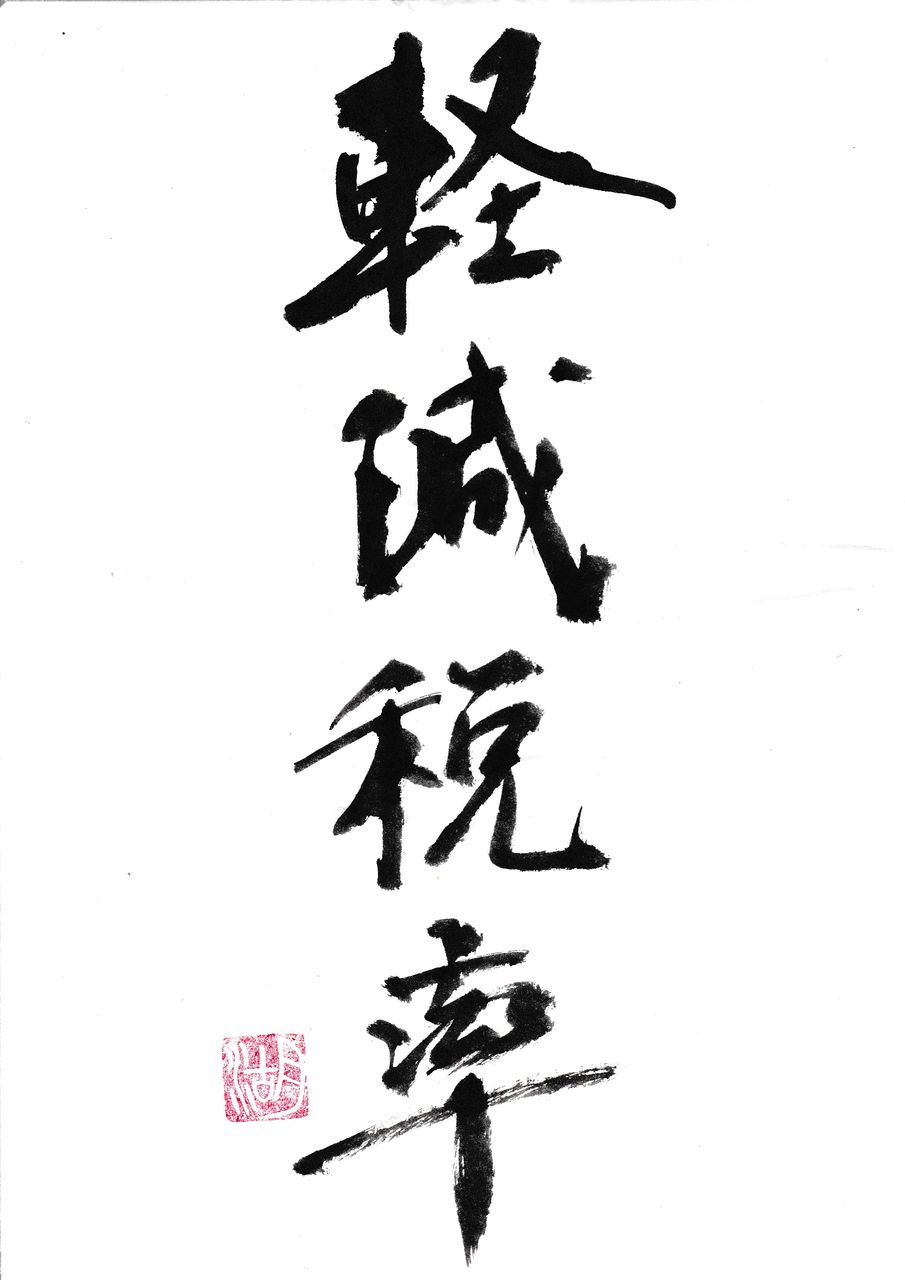 軽減税率
湖